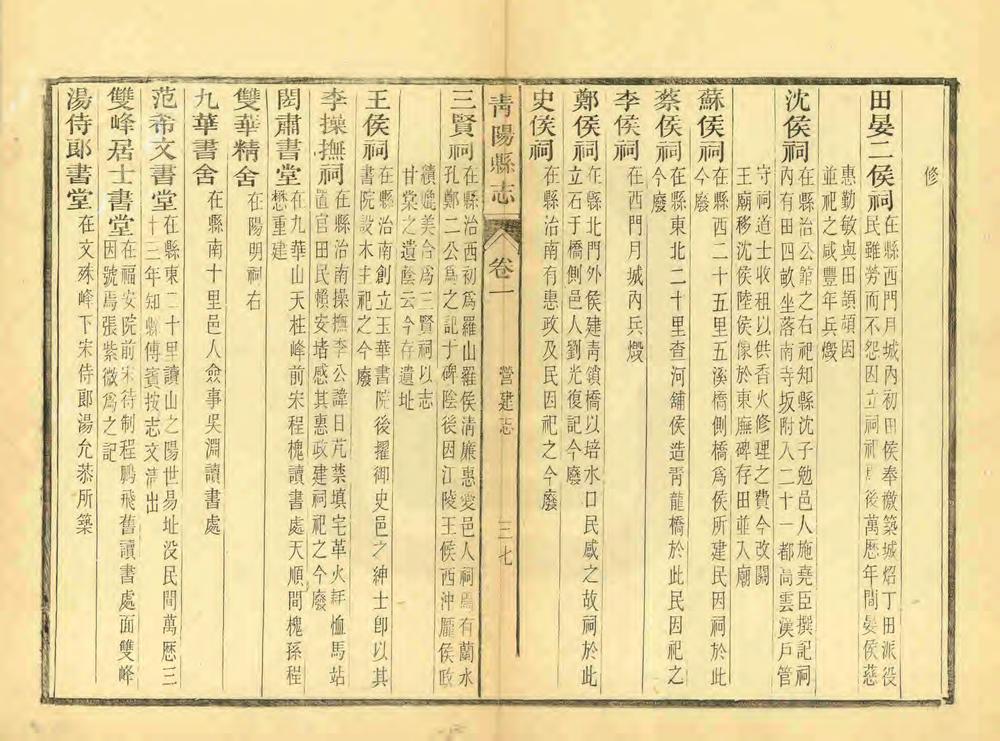 修
田晏二侯祠在縣西門月城內初田侯奉檄築城炤丁田派役
民雖勞而不怨因立祠祀後萬歷年間晏侯慈
惠勤敏與田頡頏因
並祀之咸豐年兵燬
沈侯祠在縣治公館之右祀知縣沈子勉邑人施堯臣撰記祠
內有田四畝坐落南寺坂附入二十一都高雲漢戶管
守祠道士收租以供香火修理之費今改關
王廟移沈侯陸侯像於東廡碑存田並入廟
蘇侯祠在縣西二十五里五溪橋側橋爲侯所建民因祠於此
今廢
蔡侯祠在縣東北二十里查河舖侯造靑龍橋於此民因祀之
今廢
李侯祠在西門月城內兵燬
鄭侯祠在縣北門外侯建靑鎖橋以培水口民感之故祠於此
立石于橋側邑人劉光復記今廢
史侯祠在縣治南有惠政及民因祀之今廢
靑陽縣志 卷二 營建志 三七
三賢祠在縣治西初爲羅山羅侯淸廉惠愛邑人祠焉有蘭水
孔鄭二公爲之記于碑陰後因江陵王侯西沖龐侯政
績麗美合爲三賢祠以志
甘棠之遺蔭云今存遺址
王侯祠在縣治南創立玉華書院後擢御史邑之紳士卽以其
書院設木主祀之今廢
李操撫祠在縣治南操撫李公諱日芃禁塡宅革火耗恤馬站
置官田民賴安堵感其惠政建祠祀之今廢
閎肅書堂在九華山天柱峰前宋程槐讀書處天順間槐孫程
懋重建
雙華精舍在陽明祠右
九華書舍在縣南十里邑人僉事吳淵讀書處
范希文書堂在縣東二十里讀山之陽世易址没民間萬歷三
十三年知縣傅賓按志文淸出
雙峰居士書堂在福安院前宋待制程鵬飛舊讀書處面雙峰
因號焉張紫微爲之記
湯侍郞書堂在文殊峰下宋侍郞湯允恭所築